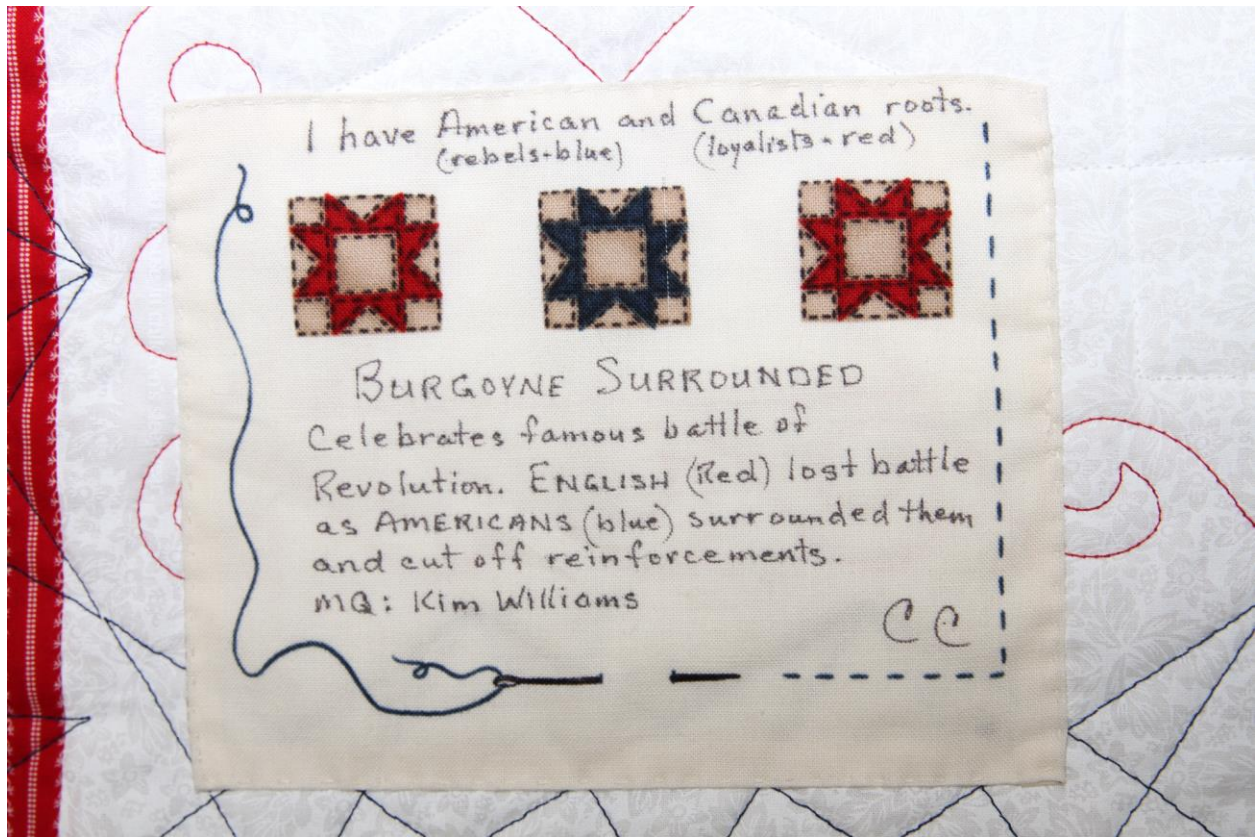 I have American and Canadian roots.
(rebels-blue) (loyalists-red)
BURGOYNE SURROUNDED
Celebrates famous battle of
Revolution. ENGLISH (Red) lost battle
as AMERICANS (blue) surrounded them
and cut off reinforcements.
MQ: Kim Williams
CC